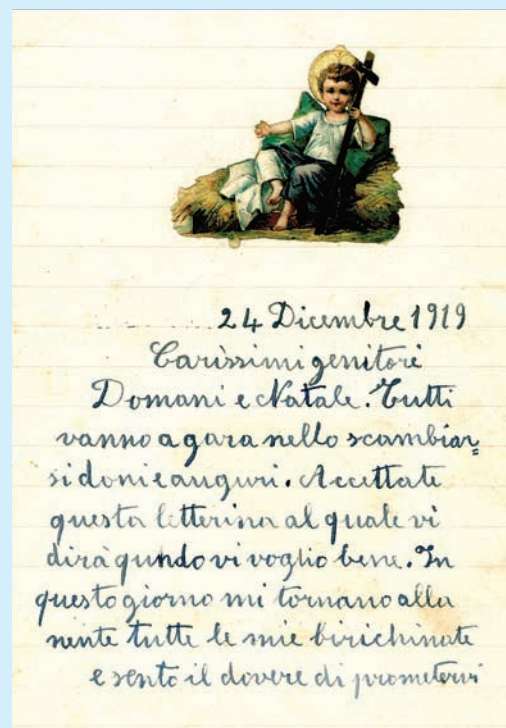 24 Dicembre 1919
Carissimi genitori
Domani e Natale. Tutti
vanno a gara nello scambiar=
si doni e auguri. Accettate
questa letterina al quale vi
dirà qundo vi voglio bene. In
questo giorno mi tornano alla
mente tutte le mie birichinate
e sento il dovere di prometervi